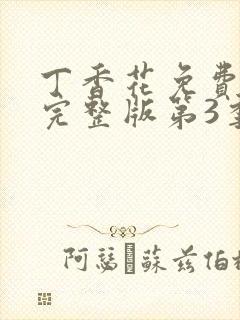 丁香花免费
完整版第3季
阿瑟·蘇兹伯